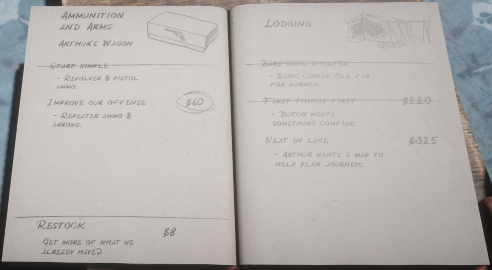 Ammunition
and Arms
Arthur's Wagon
Start simple
- Revolver & pistol
ammo.
Improve our offense $60
- Repeater ammo &
arrows.
Restock $8
Get more of what we
already have?
Lodging
Bare-bone shelter
- Basic canvas, old fur
for warmth.
First things first $220
- Dutch wants
something comfier.
Next in line $325
- Arthur wants a map to
help plan journeys.